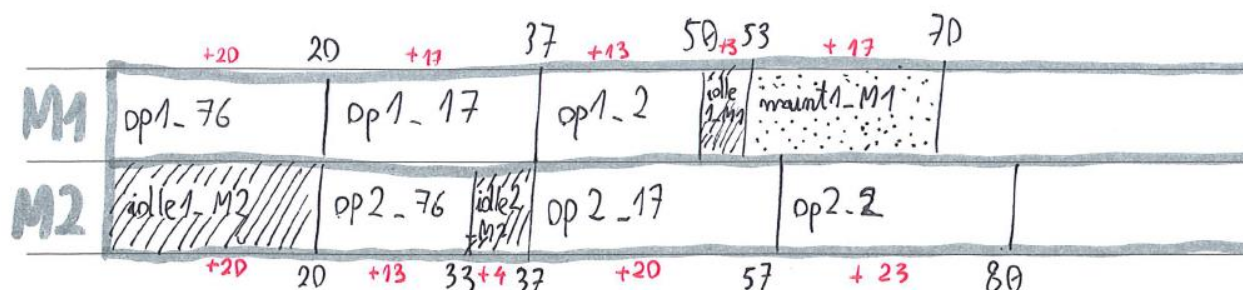 +20 20 +17 37 +13 50 +3 53 +17 70
M1 op1_76 op1_17 op1_2 idle1_M1 maint1_M1
M2 idle1_M2 op2_76 idle2_M2 op2_17 op2_2
+20 20 +13 33 +4 37 +20 57 +23 80